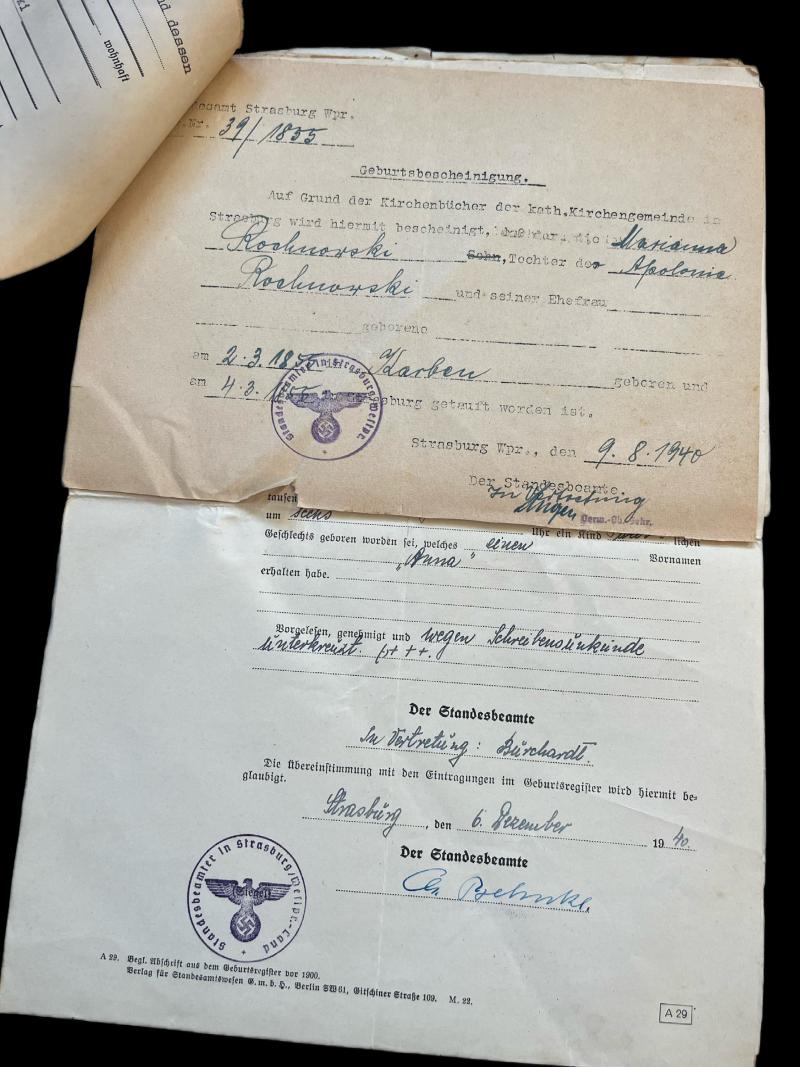 d dessen
wohnhaft
esamt Strasburg Wpr.
Nr. 39/1855
Geburtsbescheinigung.
Auf Grund der Kirchenbücher der kath.Kirchengemeinde in
Strasburg wird hiermit bescheinigt, Marianna
Rochnowski Sohn, Tochter der Apolonie
Rochnowski und seiner Ehefrau
geborene
am 2.3.1855 Karben geboren und
am 4.3.1855 burg getauft worden ist.
Strasburg Wpr., den 9.8.1940
Der Standesbeamte.
In Vertretung
Standesbeamter in Strasburg/Westpr.
tausen
um sechs Uhr ein Kind lichen
Geschlechts geboren worden sei, welches einen Vornamen
„Anna"
erhalten habe.
Vorgelesen, genehmigt und wegen Schreibensunkunde
unterkreuzt. +++.
Der Standesbeamte
In Vertretung: Burchardt.
Die Übereinstimmung mit den Eintragungen im Geburtsregister wird hiermit be-
glaubigt.
Strasburg, den 6. Dezember 1940.
Der Standesbeamte
Siegel
Standesbeamter in Strasburg/Westpr.-Land
A 29. Begl. Abschrift aus dem Geburtsregister vor 1900.
Verlag für Standesamtswesen G.m.b.H., Berlin SW 61, Gitschiner Straße 109. M. 22.
A 29